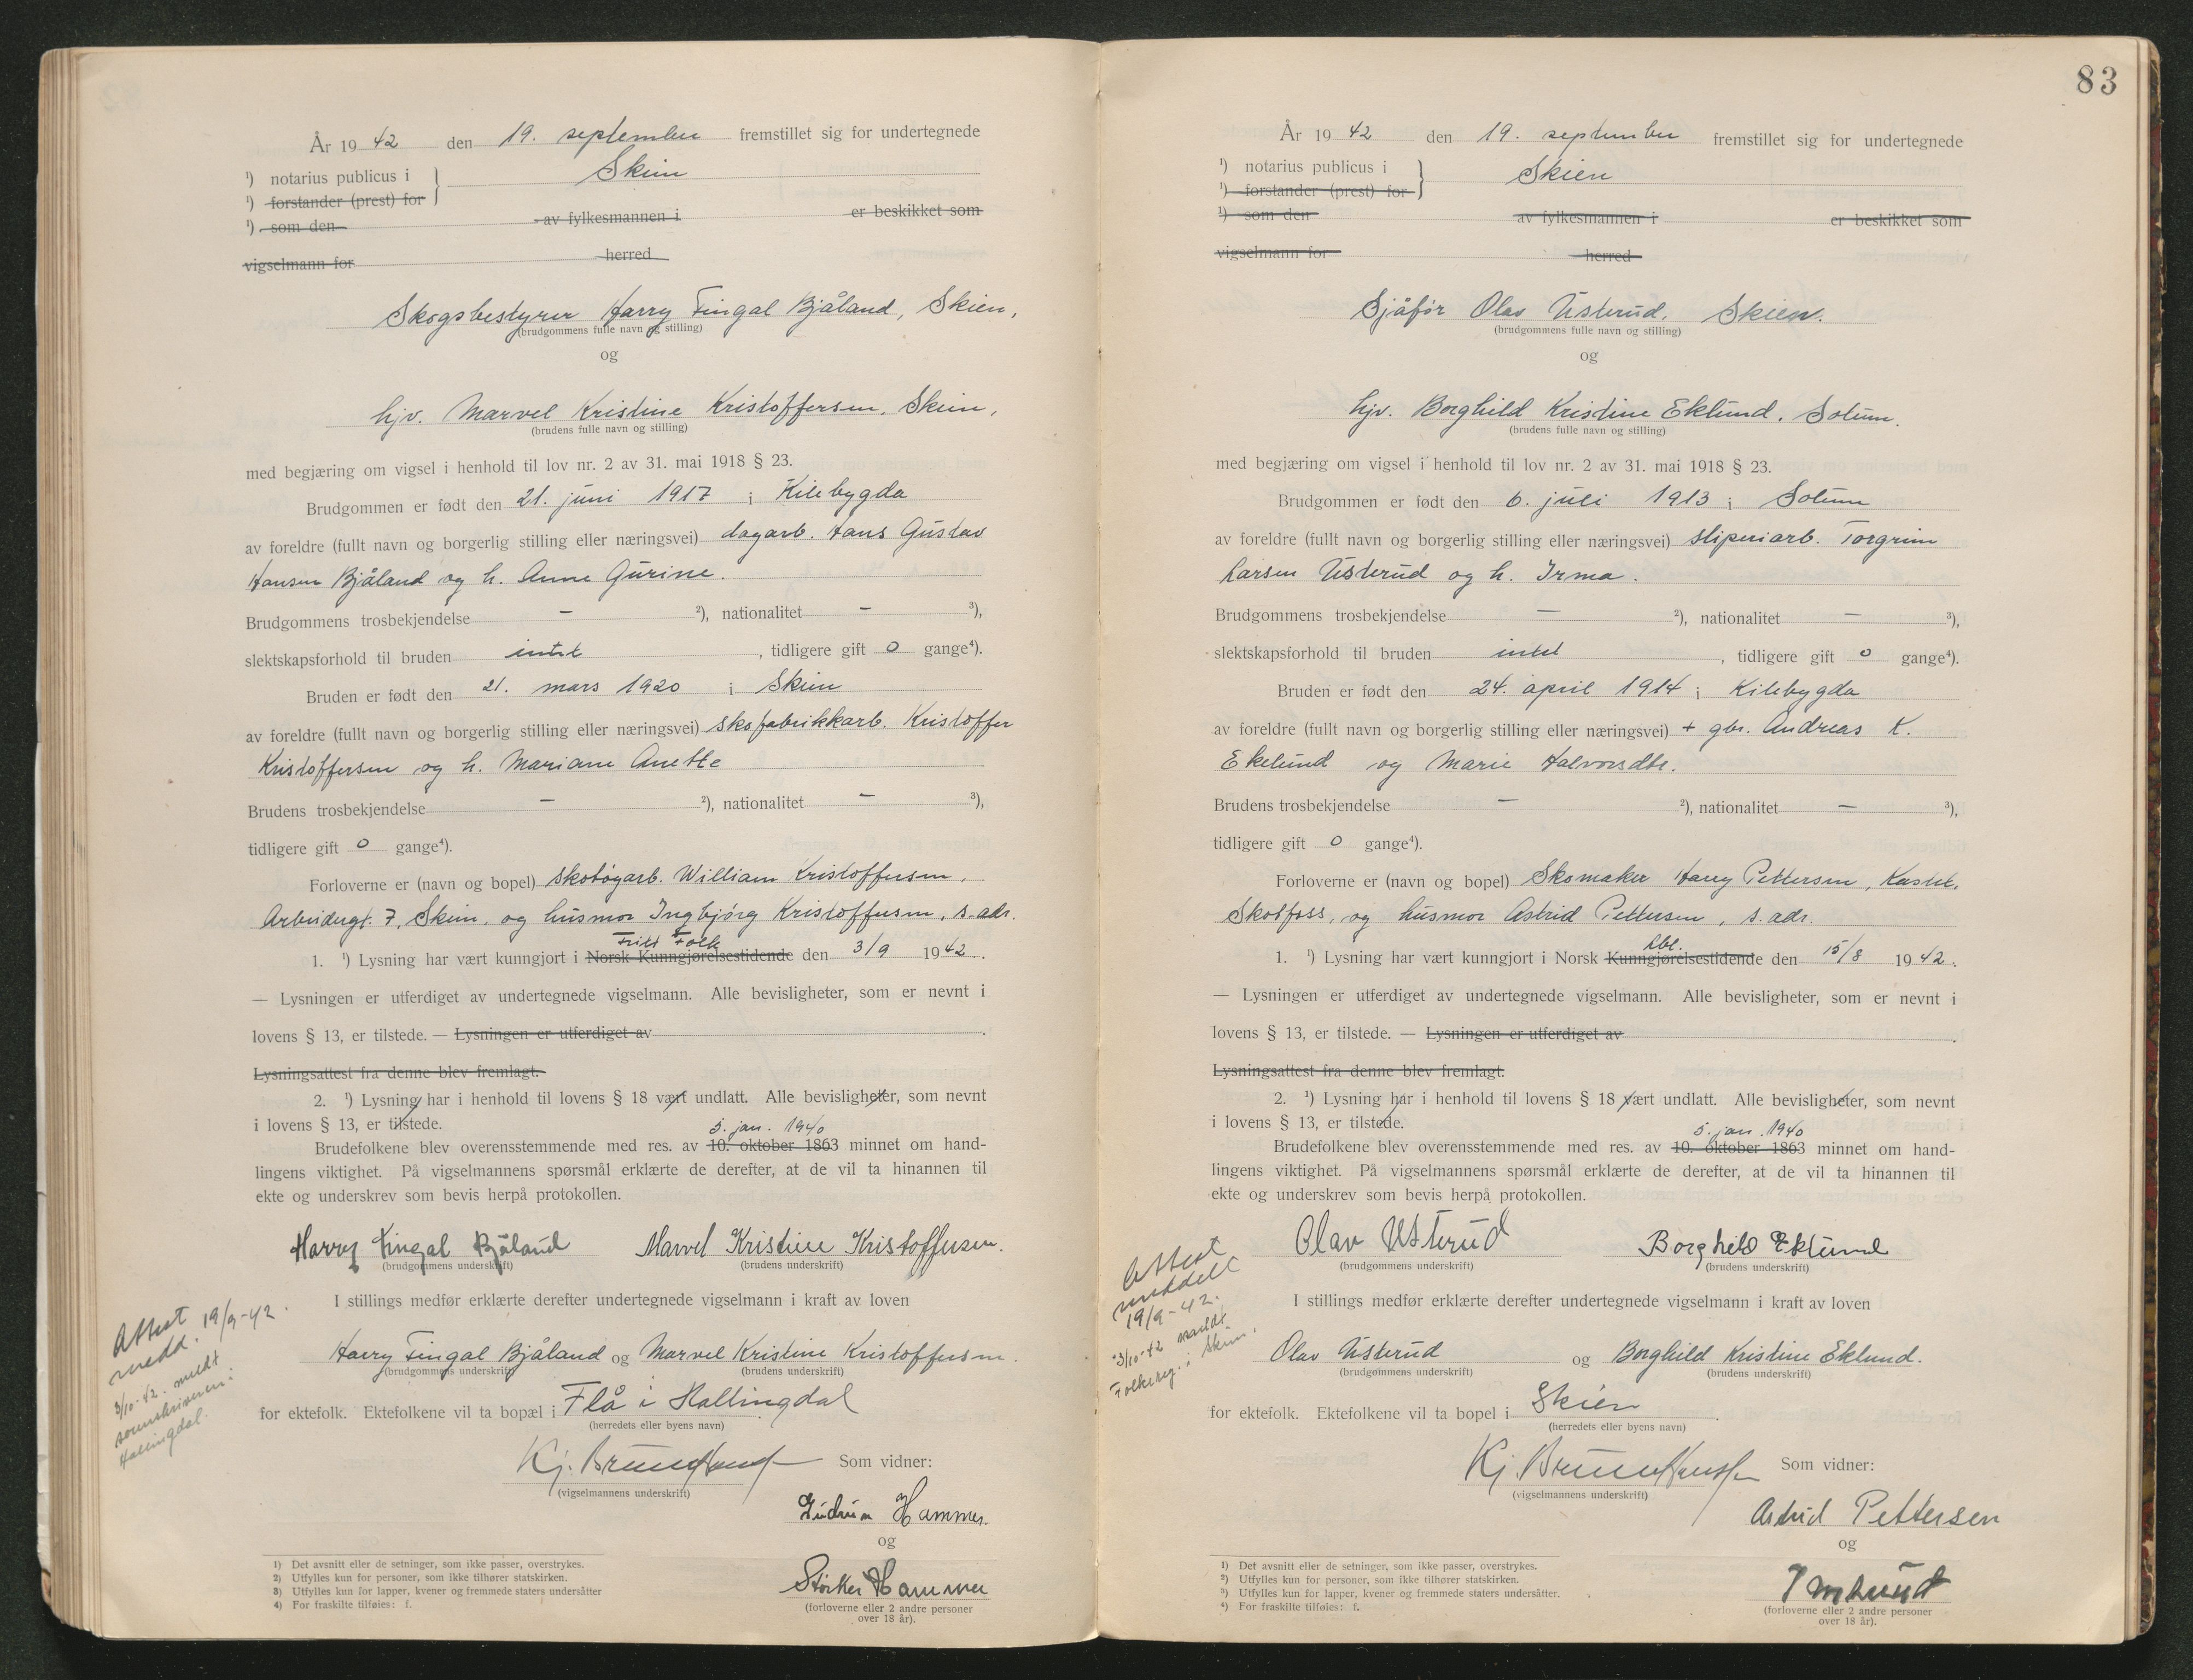 År 19 42 den 19. september fremstillet sig for undertegnede
¹) notarius publicus i } Skien
¹) forstander (prest) for
¹) som den av fylkesmannen i er beskikket som
vigselmann for herred
Skogsbestyrer Harry Fingal Bjåland, Skien,
(brudgommens fulle navn og stilling)
og
hjv. Marvel Kristine Kristoffersen, Skien,
(brudens fulle navn og stilling)
med begjæring om vigsel i henhold til lov nr. 2 av 31. mai 1918 § 23.
Brudgommen er født den 21. juni 1917 i Kilebygda
av foreldre (fullt navn og borgerlig stilling eller næringsvei) dagarb. Hans Gustav
Hansen Bjåland og h. Anne Gurine.
Brudgommens trosbekjendelse — ²), nationalitet — ³),
slektskapsforhold til bruden intet, tidligere gift 0 gange⁴).
Bruden er født den 21. mars 1920 i Skien
av foreldre (fullt navn og borgerlig stilling eller næringsvei) skofabrikkarb. Kristoffer
Kristoffersen og h. Mariane Anette
Brudens trosbekjendelse — ²), nationalitet — ³),
tidligere gift 0 gange⁴).
Forloverne er (navn og bopel) skotøyarb. William Kristoffersen,
Arbeidergt. 7, Skien, og husmor Ingbjørg Kristoffersen, s. adr.
Fritt Folk
1. ¹) Lysning har vært kunngjort i Norsk Kunngjørelsestidende den 3/9 1942.
— Lysningen er utferdiget av undertegnede vigselmann. Alle bevisligheter, som er nevnt i
lovens § 13, er tilstede. — Lysningen er utferdiget av
Lysningsattest fra denne blev fremlagt.
2. ¹) Lysning har i henhold til lovens § 18 vært undlatt. Alle bevisligheter, som nevnt
i lovens § 13, er tilstede.
5. jan. 1940
Brudefolkene blev overensstemmende med res. av 10. oktober 1863 minnet om hand-
lingens viktighet. På vigselmannens spørsmål erklærte de derefter, at de vil ta hinannen til
ekte og underskrev som bevis herpå protokollen.
Harry Fingal Bjåland Marvel Kristine Kristoffersen.
(brudgommens underskrift) (brudens underskrift)
I stillings medfør erklærte derefter undertegnede vigselmann i kraft av loven
Attest 19/9-42.
medd.
3/10-42. meldt
sorenskriveren i
Hallingdal.
Harry Fingal Bjåland og Marvel Kristine Kristoffersen.
(brudgommens underskrift) (brudens underskrift)
for ektefolk. Ektefolkene vil ta bopæl i Flå i Hallingdal
(herredets eller byens navn)
Kj. Som vidner:
(vigselmannens underskrift)
Gudrun Hammer.
og
Størker Hammer
(forloverne eller 2 andre personer
over 18 år).
1) Det avsnitt eller de setninger, som ikke passer, overstrykes.
2) Utfylles kun for personer, som ikke tilhører statskirken.
3) Utfylles kun for lapper, kvener og fremmede staters undersåtter
4) For fraskilte tilføies: f.
83
År 19 42 den 19. september fremstillet sig for undertegnede
¹) notarius publicus i } Skien
¹) forstander (prest) for
¹) som den av fylkesmannen i er beskikket som
vigselmann for herred
Sjåfør Olav Usterud, Skien.
(brudgommens fulle navn og stilling)
og
hjv. Borghild Kristine Eklund, Solum.
(brudens fulle navn og stilling)
med begjæring om vigsel i henhold til lov nr. 2 av 31. mai 1918 § 23.
Brudgommen er født den 6. juli 1913 i Solum
av foreldre (fullt navn og borgerlig stilling eller næringsvei) sliperiarb. Torgrim
Larsen Usterud og h. Irma.
Brudgommens trosbekjendelse — ²), nationalitet — ³),
slektskapsforhold til bruden intet, tidligere gift 0 gange⁴).
Bruden er født den 24. april 1914 i Kilebygda
av foreldre (fullt navn og borgerlig stilling eller næringsvei) + gbr. Andreas K.
Ekelund og Marie Halvorsdtr.
Brudens trosbekjendelse — ²), nationalitet — ³),
tidligere gift 0 gange⁴).
Forloverne er (navn og bopel) Skomaker Harry Pettersen, Kastet,
Skotfoss, og husmor Astrid Pettersen, s. adr.
1. ¹) Lysning har vært kunngjort i Norsk Kunngjørelsestidende den 15/8 1942.
— Lysningen er utferdiget av undertegnede vigselmann. Alle bevisligheter, som er nevnt i
lovens § 13, er tilstede. — Lysningen er utferdiget av
Lysningsattest fra denne blev fremlagt.
2. ¹) Lysning har i henhold til lovens § 18 vært undlatt. Alle bevisligheter, som nevnt
i lovens § 13, er tilstede.
5. jan. 1940
Brudefolkene blev overensstemmende med res. av 10. oktober 1863 minnet om hand-
lingens viktighet. På vigselmannens spørsmål erklærte de derefter, at de vil ta hinannen til
ekte og underskrev som bevis herpå protokollen.
Olav Usterud Borghild Eklund
(brudgommens underskrift) (brudens underskrift)
Attest
meddelt
19/9-42.
3/10-42 meldt
Folkereg. i Skien.
I stillings medfør erklærte derefter undertegnede vigselmann i kraft av loven
Olav Usterud og Borghild Kristine Eklund.
(brudgommens underskrift) (brudens underskrift)
for ektefolk. Ektefolkene vil ta bopel i Skien.
(herredets eller byens navn)
Kj. Som vidner:
(vigselmannens underskrift)
Astrid Pettersen
og
(forloverne eller 2 andre personer
over 18 år).
1) Det avsnitt eller de setninger, som ikke passer, overstrykes.
2) Utfylles kun for personer, som ikke tilhører statskirken.
3) Utfylles kun for lapper, kvener og fremmede staters undersåtter.
4) For fraskilte tilføies: f.